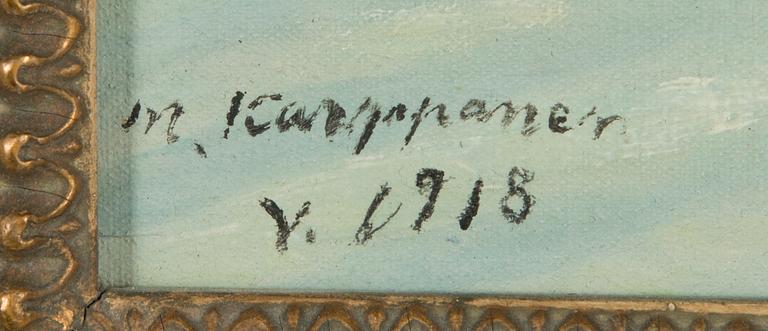 M. Karppanen
V. 1918